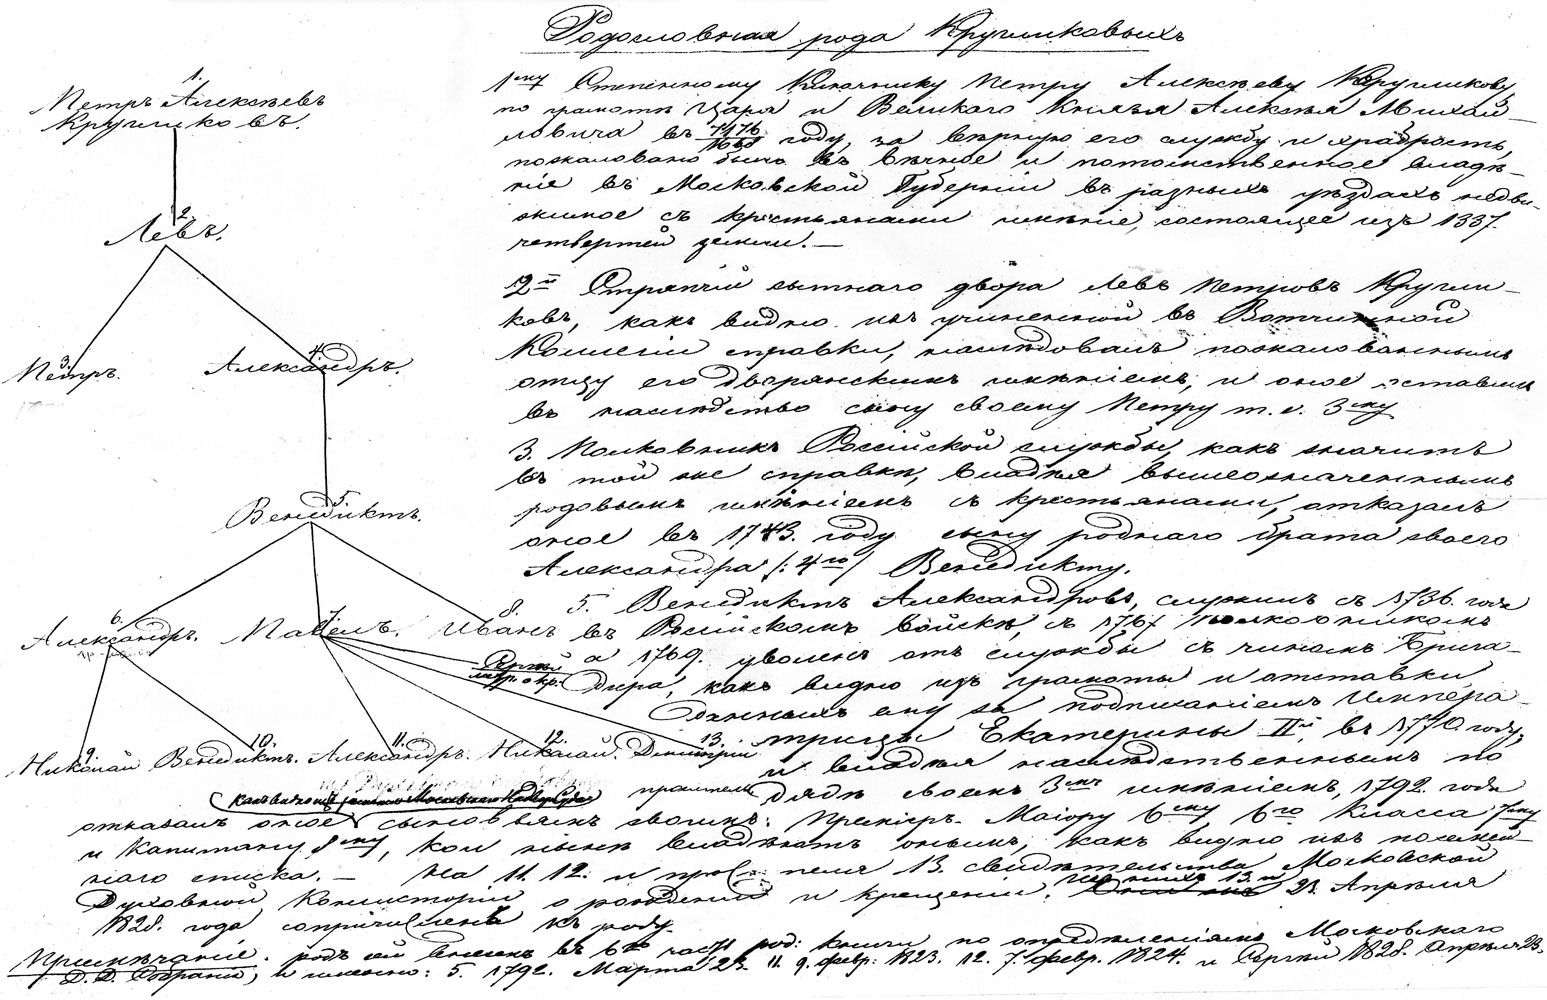 Родословная рода Кругликовыхъ
1.
Петръ Алексѣевъ
Кругликовъ.
2.
Левъ.
3.
Петръ.
4.
Александръ.
5.
Венедиктъ.
6.
Александръ.
7.
Павелъ.
8.
Иванъ
Сергѣй
9.
Николай
10.
Венедиктъ.
11.
Александръ.
12.
Николай.
13.
Дмитрий
1му Степенному Ключнику Петру Алексѣеву Кругликову
по грамотѣ Царя и Великаго Князя Алексѣя Михай-
ловича въ 7176/1668 году, за вѣрную его службу и храбрость,
пожаловано было въ вѣчное и потомственное владѣ-
ние въ Московской Губерніи въ разныхъ уѣздахъ недви-
жимое съ крестьянами имѣніе, состоящее изъ 1337.
четвертей земли. —
2й Стряпчій сытнаго двора Левъ Петровъ Кругли-
ковъ, какъ видно изъ учиненной въ Вотчинной
Коллегіи справки, наслѣдовалъ пожалованнымъ
отцу его дворянскимъ имѣніемъ, и оное оставилъ
въ наслѣдство сыну своему Петру т. е. 3му
3. Полковникъ Россійской службы, какъ значитъ
въ той же справкѣ, владѣя вышеозначеннымъ
родовымъ имѣніемъ съ крестьянами, отказалъ
оное въ 1743. году сыну роднаго брата своего
Александра /: 4го / Венедикту.
5. Венедиктъ Александровъ, служилъ съ 1736. года
въ Россійскомъ войскѣ, съ 1767 полковникомъ
а 1769. уволенъ отъ службы съ чиномъ Брига-
дира, какъ видно изъ грамоты и отставки
данныхъ ему за подписаніемъ Импера-
трицы Екатерины IIй, въ 1770. году,
и владѣя наслѣдственнымъ по
дядѣ своемъ 3мъ имѣніемъ, 1792. года
какъ видно изъ Московскаго Надвор. Суда
отказалъ оное сыновьямъ своимъ: Премьеръ-Маіору 6му 6го Класса 7му
и Капитану 8му, кои нынѣ владѣютъ онымъ, какъ видно изъ послуж-
наго списка. — На 11. 12. и 13. свидѣтельства Московской
Духовной Консисторіи о рожденіи и крещеніи. 23. Апрѣля
1828. года сопричислены къ роду.
Примѣчаніе. родъ сей внесенъ въ 6ю часть род: книги по опредѣленіямъ Московскаго
Д. Д. Собранія, и именно: 5. 1792. Марта 23. 11. 9. февр: 1823. 12. 7. февр. 1824. и Сергѣй 1828. Апрѣля 23.